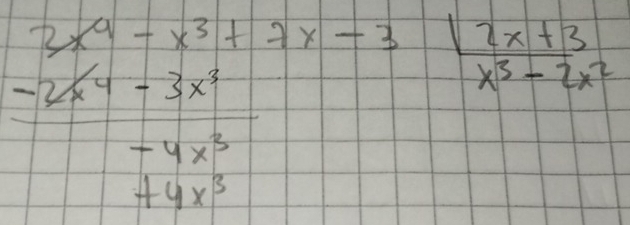 2x⁴ - x³ + 7x - 3 | 2x + 3
-2x⁴ - 3x³ x³ - 2x²
-4x³
+4x³